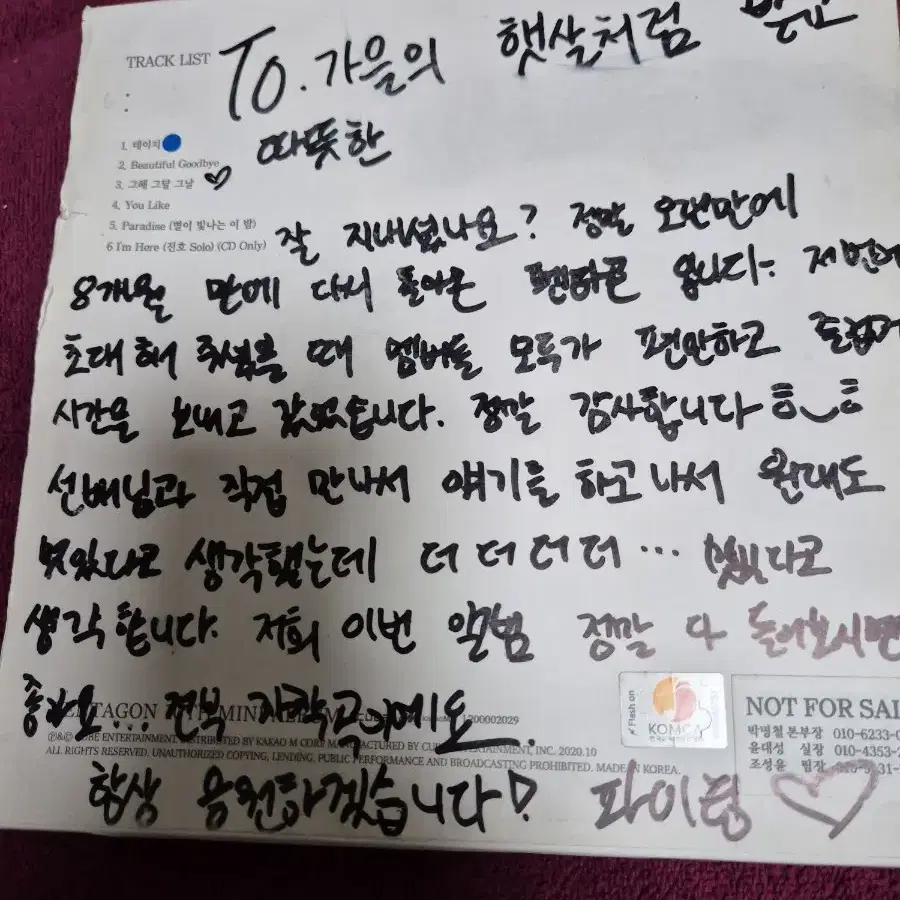 TRACK LIST
To. 가을의 햇살처럼 밝고
따뜻한
1. 데이지
2. Beautiful Goodbye
3. 그해 그달 그날
4. You Like
5. Paradise (별이 빛나는 이 밤)
6 I'm Here (진호 Solo) (CD Only)
잘 지내셨나요? 정말 오랜만에
8개월 만에 다시 돌아온 펜타곤 입니다. 저번에
초대해 주셨을 때 멤버들 모두가 편안하고 즐겁게
시간을 보내고 갔었습니다. 정말 감사합니다
선배님과 직접 만나서 얘기를 하고나서 원래도
멋있다고 생각했는데 더 더 더 더 ... 멋있다고
생각합니다. 저희 이번 앨범 정말 다 들어보시면
좋아요... 전부 자작곡이에요.
항상 응원하겠습니다! 파이팅
PENTAGON MINI
ENTERTAINMENT, DISTRIBUTED BY KAKAO M CORP. MANUFACTURED BY CUBE ENTERTAINMENT, INC. 2020.10
ALL RIGHTS RESERVED. UNAUTHORIZED COPYING, LENDING, PUBLIC PERFORMANCE AND BROADCASTING PROHIBITED. MADE IN KOREA.
1200002029
Flash on
KOMCA
NOT FOR SAL
박명철 본부장 010-6233-0
윤대성 실장 010-4353-2
조성윤 팀장